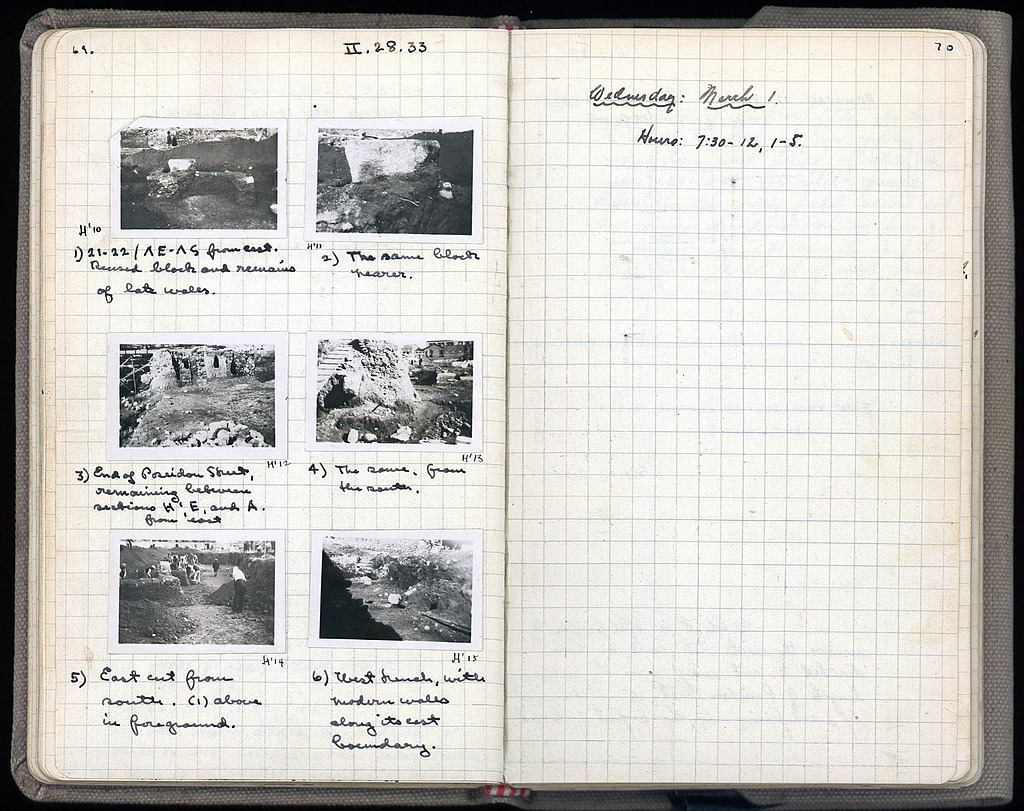 69.
II.28.33
H'10
1) 21-22/ΛE-ΛS from east.
Reused block and remains
of late walls.
H'11
2) The same block
nearer.
H'12
3) End of Poseidon Street,
remaining between
sections H', E, and A.
from east
H'13
4) The same, from
the south.
H'14
5) East cut from
south. (1) above
in foreground.
H'15
6) West trench, with
modern walls
along its east
boundary.
70
Wednesday: March 1.
Hours: 7:30-12, 1-5.